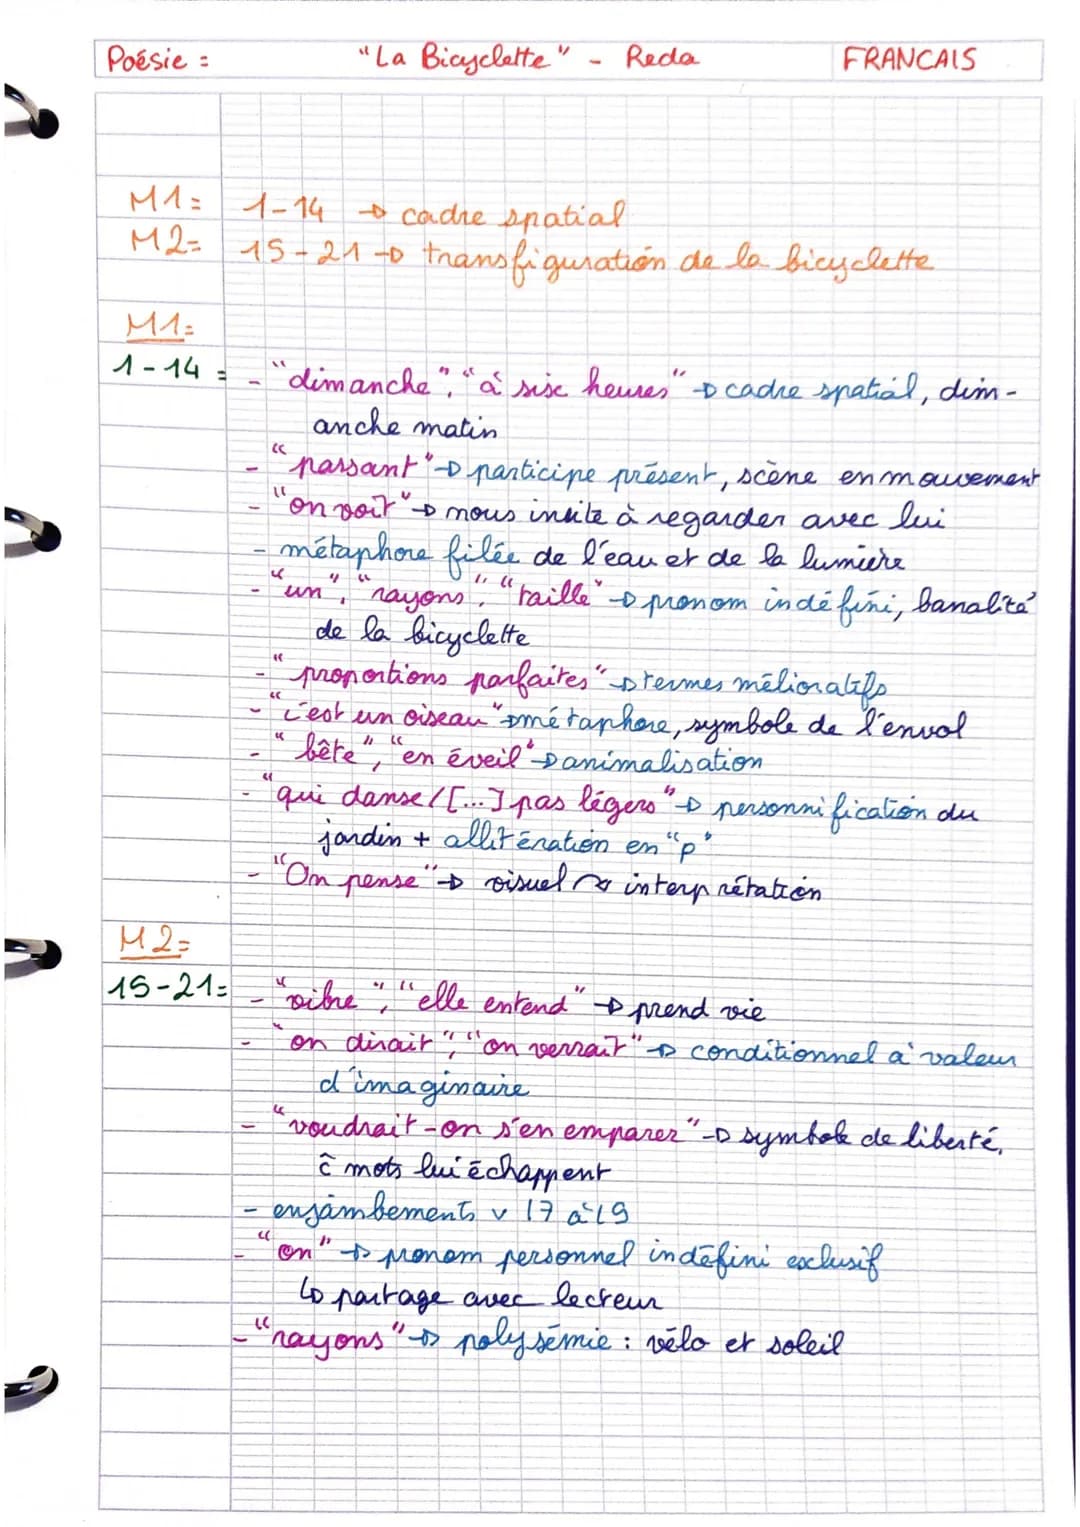 Poésie : "La Bicyclette" - Reda FRANCAIS
M1= 1-14 → cadre spatial
M2= 15-21 → transfiguration de la bicyclette
M1=
1-14 = - "dimanche", "à six heures" → cadre spatial, dim-
anche matin
- "passant" → participe présent, scène en mouvement
- "on voit" → nous invite à regarder avec lui
- métaphore filée de l'eau et de la lumière
- "un", "rayons", "taille" → pronom indéfini, banalité
de la bicyclette
- "proportions parfaites" → termes mélioratifs
- "c'est un oiseau" → métaphore, symbole de l'envol
- "bête", "en éveil" → animalisation
- "qui danse/[...] pas légers" → personnification du
jardin + allitération en "p"
- "On pense" → visuel ↝ interprétation
M2=
15-21= - "vibre", "elle entend" → prend vie
- "on dirait", "on verrait" → conditionnel à valeur
d'imaginaire
- "voudrait-on s'en emparer" → symbole de liberté,
ĉ mots lui échappent
- enjambements v 17 à 19
- "on" → pronom personnel indéfini exclusif
↳ partage avec lecteur
- "rayons" → polysémie : vélo et soleil